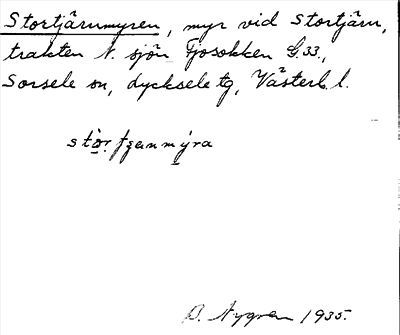 Stortjärnmyren, myr vid Stortjärn,
trakten N. sjön Fjosokken G.33.,
Sorsele sn, Lycksele tg, Västerb. l.
stòr tjenmýra
B. Nygren 1935.